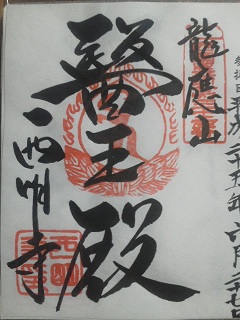 参拝日平成二十五年六月二十七日
龍應山
醫王殿
西明寺